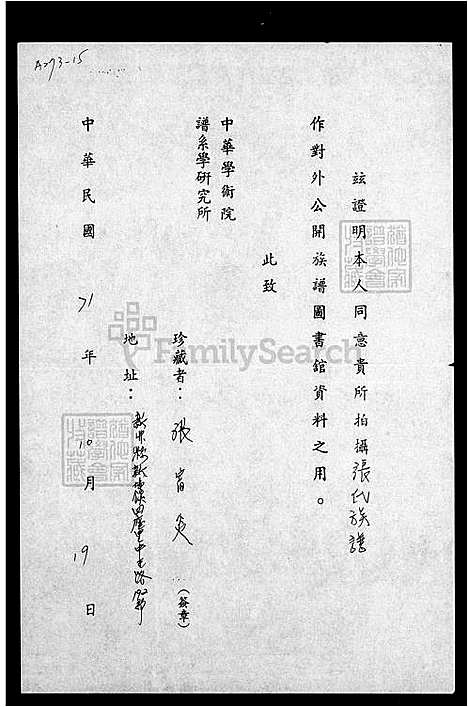 A273-15
茲證明本人同意貴所拍攝張氏族譜
作對外公開族譜圖書館資料之用。
此致
中華學術院
譜系學研究所
珍藏者：張 (簽章)
地址：
中華民國 71 年 10 月 19 日
FamilySearch